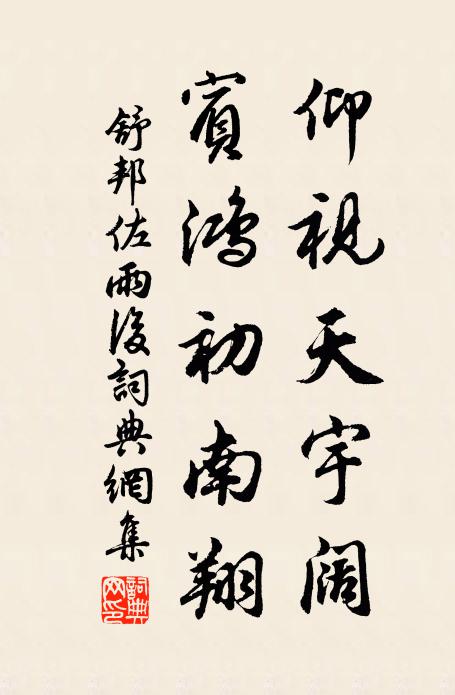 仰視天宇闊
賓鴻初南翔
舒邦佐雨後詞典網集
詞典網印